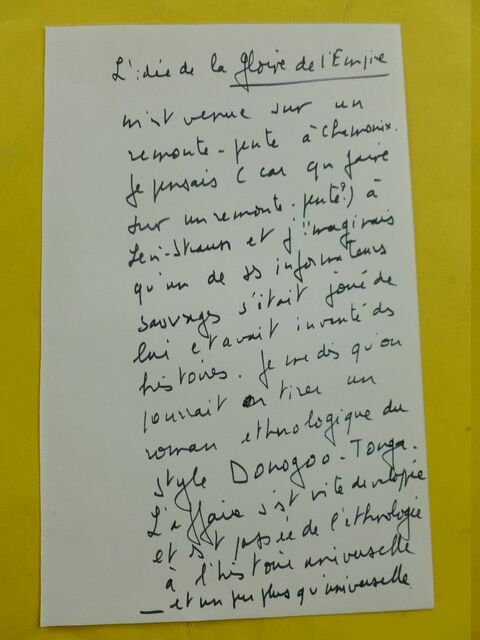 L'idée de la Gloire de l'Empire
m'est venue sur un
remonte-pente à Chamonix.
Je pensais (car que faire
sur un remonte-pente ?) à
Levi-Strauss et j'imaginais
qu'un de ses informateurs
sauvages s'était joué de
lui et avait inventé des
histoires. Je me dis qu'on
pourrait en tirer un
roman ethnologique du
style Donogoo-Tonga.
L'affaire s'est vite développée
et est passée de l'ethnologie
à l'histoire universelle
— et un peu plus qu'universelle.